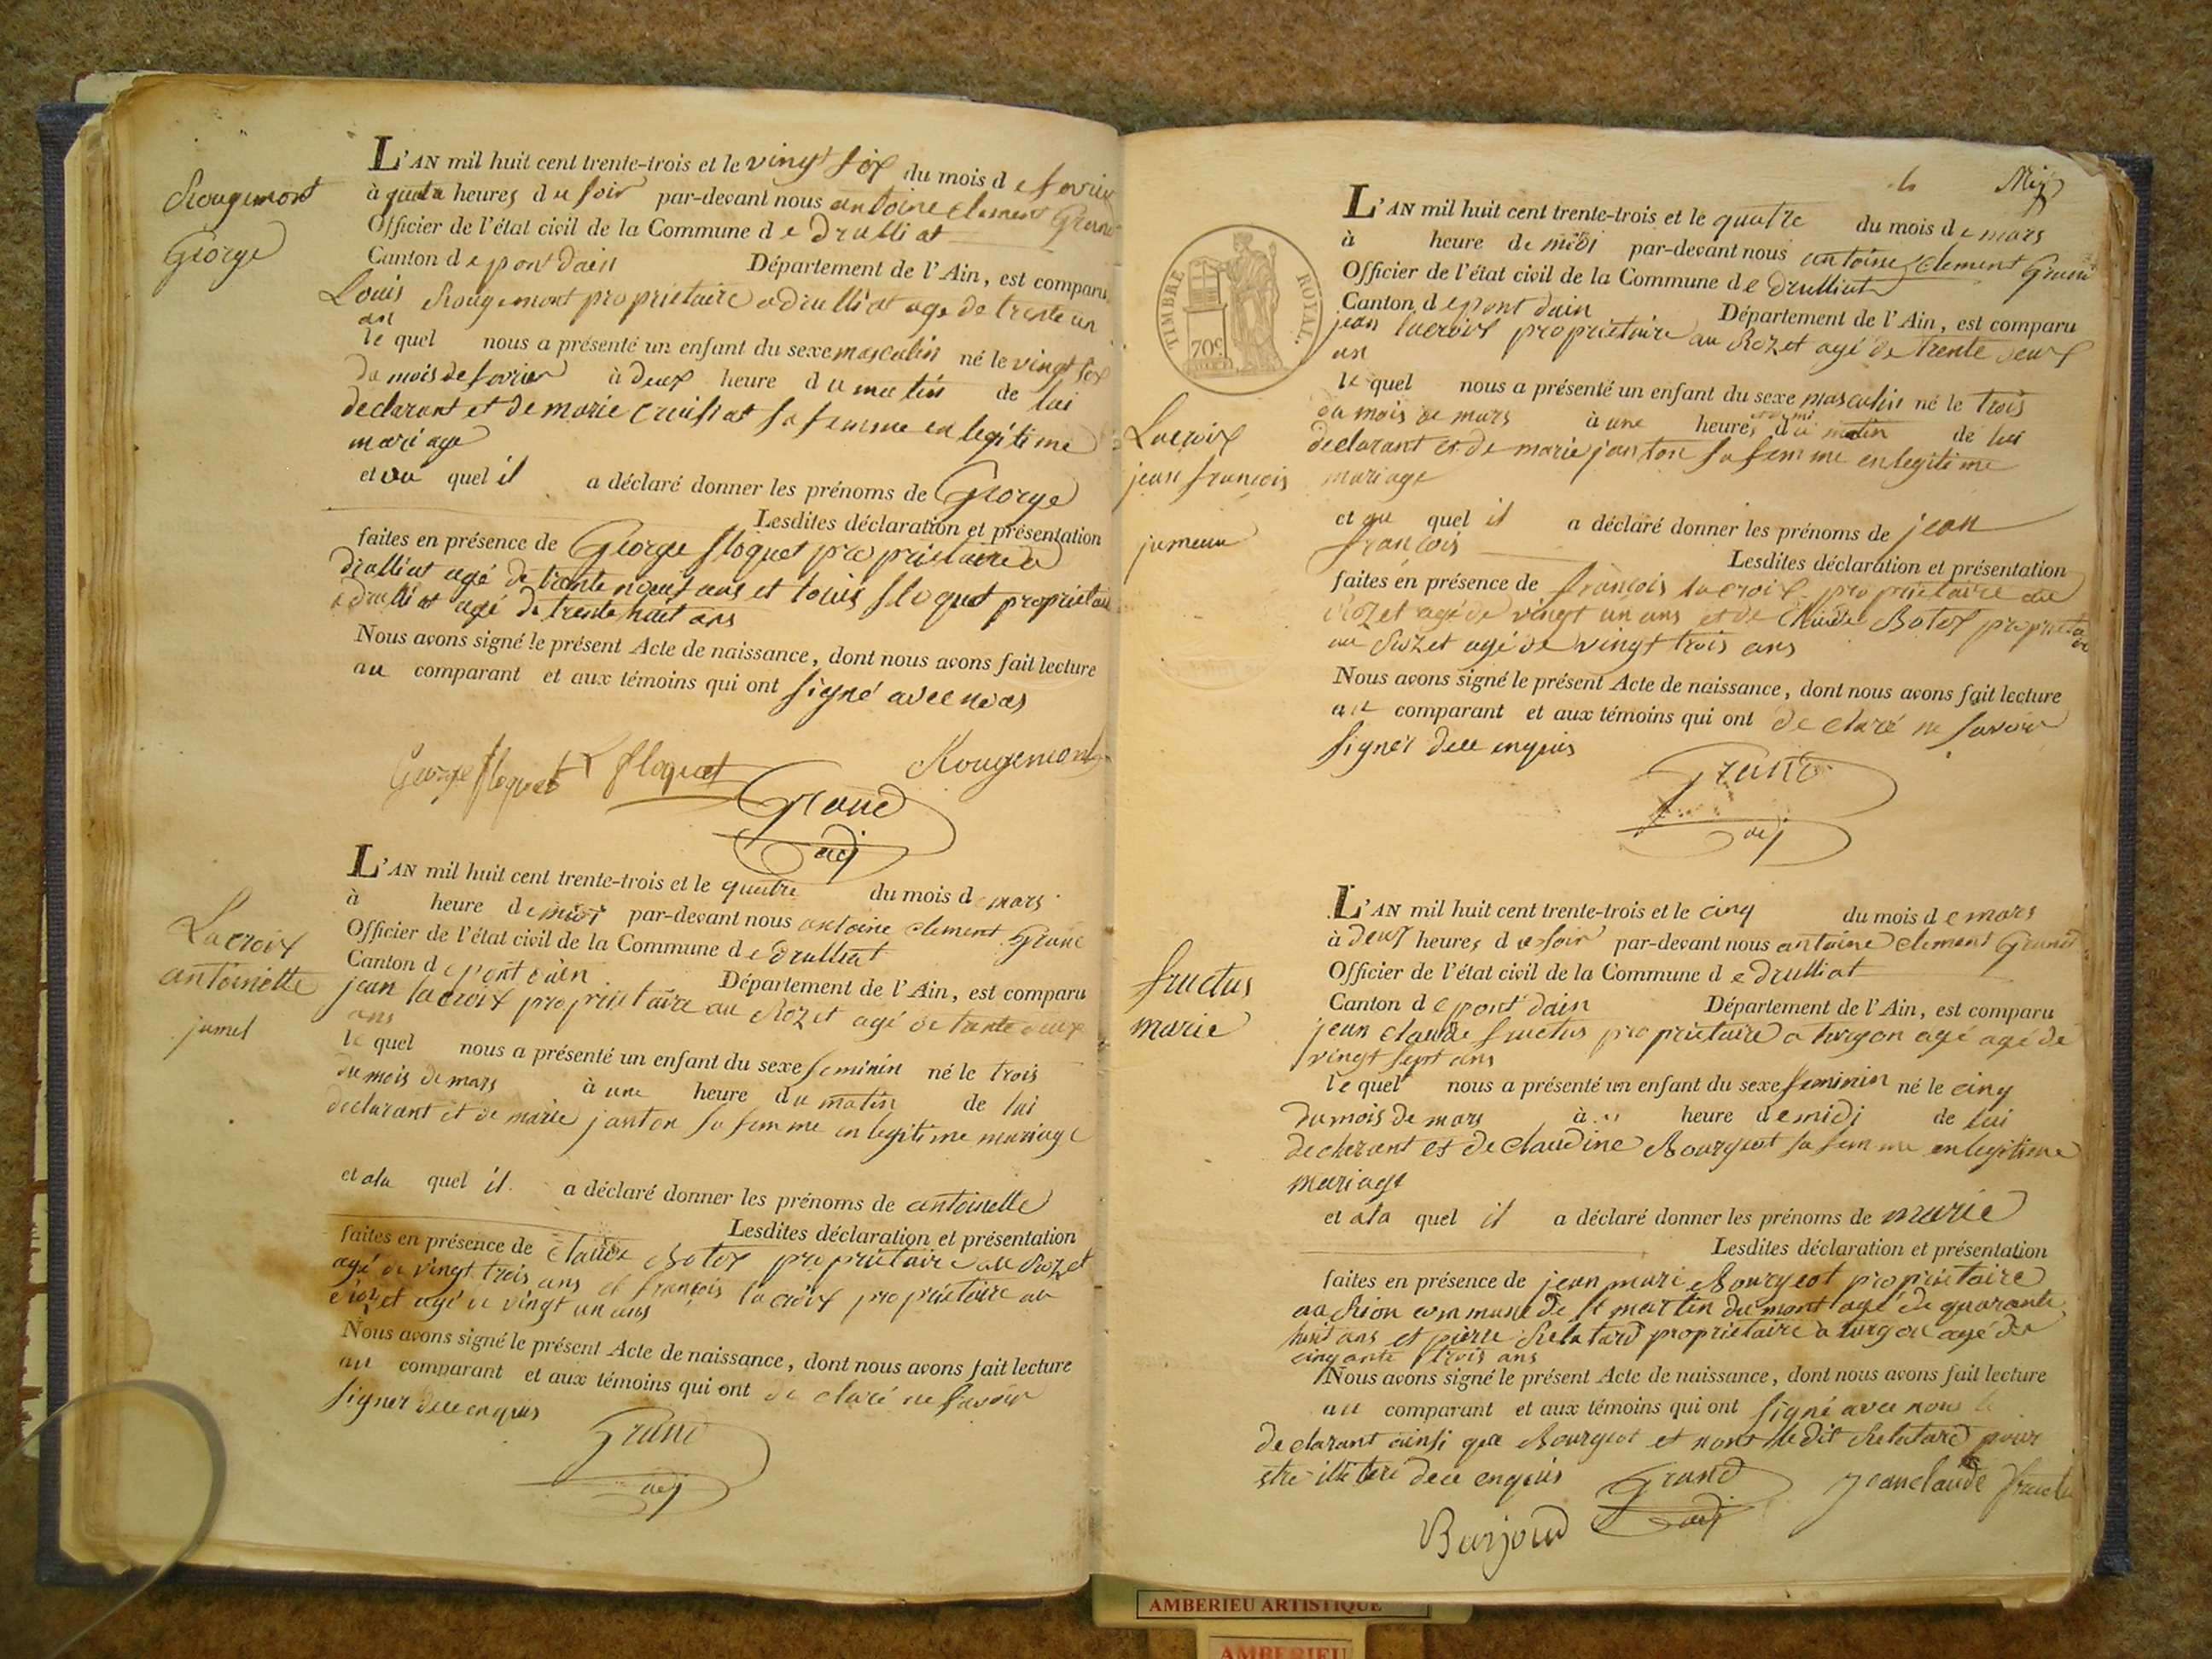 Rougemont
George
L'AN mil huit cent trente-trois et le vingt six du mois de fevrier
à quatre heures du soir par-devant nous antoine clement Grand
Officier de l'état civil de la Commune de druilliat
Canton de pont dain Département de l'Ain, est comparu
Louis Rougemont proprietaire a druilliat agé de trente un
an
le quel nous a présenté un enfant du sexe masculin né le vingt six
du mois de fevrier à deux heure du matin de lui
declarant et de marie sa femme en legitime
mariage
et au quel il a déclaré donner les prénoms de George
Lesdites déclaration et présentation
faites en présence de George floquet proprietaire a
druilliat agé de trente neuf ans et louis floquet proprietaire
a druilliat agé de trente huit ans
Nous avons signé le présent Acte de naissance, dont nous avons fait lecture
au comparant et aux témoins qui ont signé avec nous
George floquet L floquet Rougemont
Grand
adj
Lacroix
antoinette
jumel
L'AN mil huit cent trente-trois et le quatre du mois de mars
à heure de midi par-devant nous antoine clement Grand
Officier de l'état civil de la Commune de druilliat
Canton de pont dain Département de l'Ain, est comparu
jean lacroix proprietaire au Rozet agé de trente deux
ans
le quel nous a présenté un enfant du sexe feminin né le trois
du mois de mars à une heure du matin de lui
declarant et de marie janton sa femme en legitime mariage
et ala quel il a déclaré donner les prénoms de antoinette
Lesdites déclaration et présentation
faites en présence de claude Botex proprietaire au Rozet
agé de vingt trois ans et françois lacroix proprietaire au
Rozet agé de vingt un ans
Nous avons signé le présent Acte de naissance, dont nous avons fait lecture
au comparant et aux témoins qui ont de claré ne savoir
signer dece enquis
Grand
adj
TIMBRE ROYAL.
70c
Lacroix
jean françois
jumeau
L'AN mil huit cent trente-trois et le quatre du mois de mars
à heure de midi par-devant nous antoine clement Grand
Officier de l'état civil de la Commune de druilliat
Canton de pont dain Département de l'Ain, est comparu
jean lacroix proprietaire au Rozet agé de trente deux
an
le quel nous a présenté un enfant du sexe masculin né le trois
du mois de mars à une heures du matin de lui
declarant et de marie janton sa femme en legitime
mariage
et au quel il a déclaré donner les prénoms de jean
françois
Lesdites déclaration et présentation
faites en présence de françois lacroix proprietaire au
Rozet agé de vingt un ans et de Claude Botex proprietaire
au Rozet agé de vingt trois ans
Nous avons signé le présent Acte de naissance, dont nous avons fait lecture
au comparant et aux témoins qui ont de claré ne savoir
signer dece enquis
Grand
adj
fructus
marie
L'AN mil huit cent trente-trois et le cinq du mois de mars
à deux heures du soir par-devant nous antoine clement Grand
Officier de l'état civil de la Commune de druilliat
Canton de pont dain Département de l'Ain, est comparu
jean claude fructus proprietaire a turgon agé agé de
vingt sept ans
le quel nous a présenté un enfant du sexe feminin né le cinq
du mois de mars à heure de midi de lui
declarant et de claudine Bourgeot sa femme en legitime
mariage
et ala quel il a déclaré donner les prénoms de marie
Lesdites déclaration et présentation
faites en présence de jean mari Bourgeot proprietaire
au Rion commune de st martin du mont agé de quarante
huit ans et pierre Relatard proprietaire a turgon agé de
cinquante trois ans
Nous avons signé le présent Acte de naissance, dont nous avons fait lecture
au comparant et aux témoins qui ont signé avec nous le
declarant ainsi que Bourgeot et non ledit Relatard pour
etre illiteré dece enquis
Grand
adj
Jean claude
AMBERIEU ARTISTIQUE
AMBERIEU